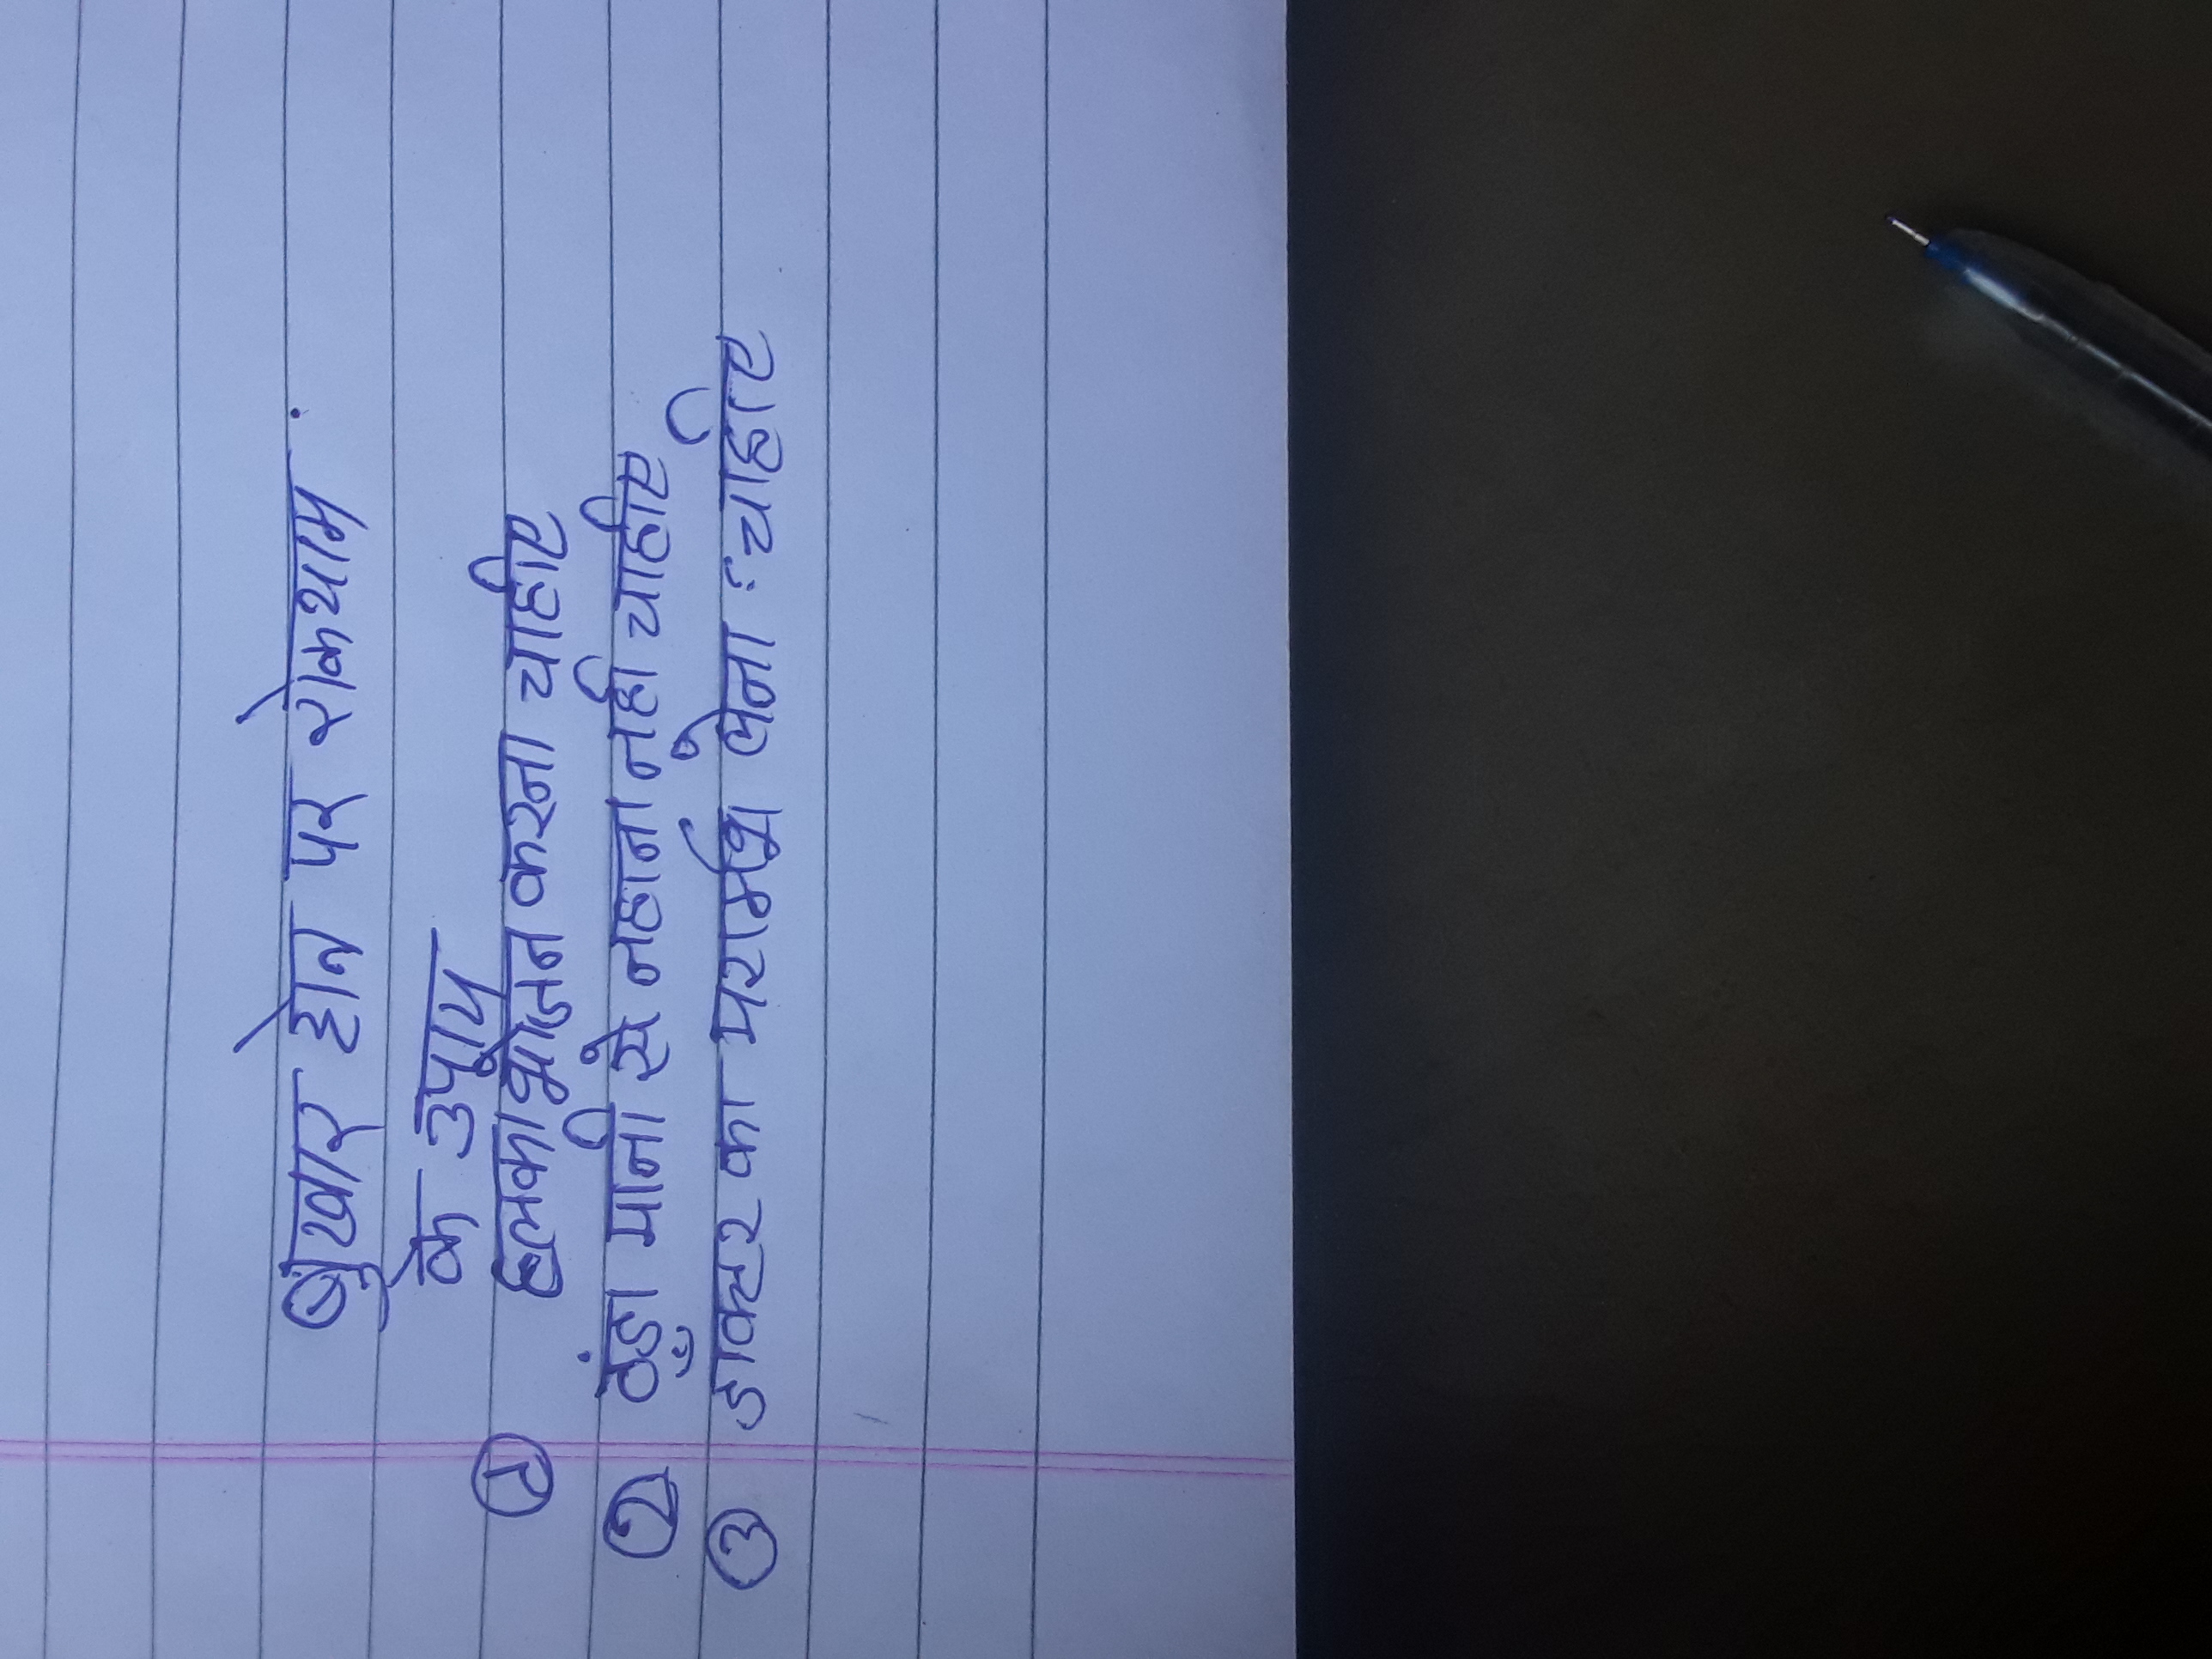 बुखार होने पर रोकथाम
के उपाय
① हल्का भोजन करना चाहीए
② ठंडा पानी से नहाना नही चाहीए
③ डाक्टर का परामर्श लेना चाहीए